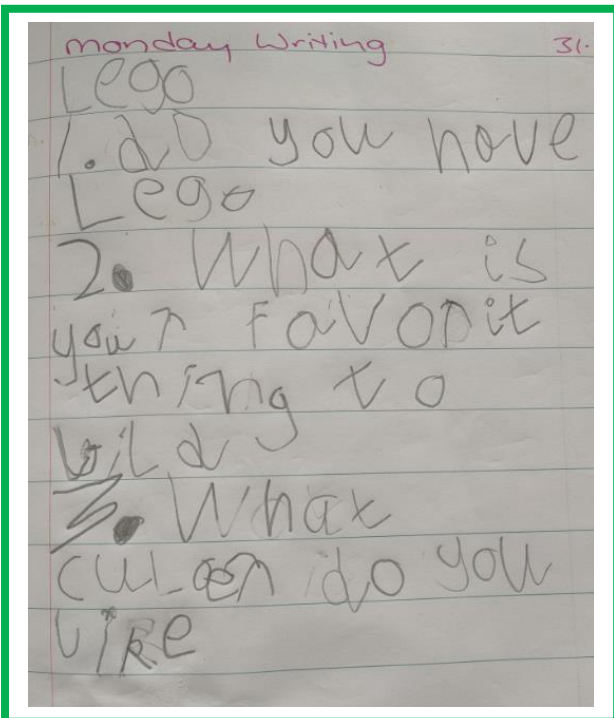 monday Writing 31.
Lego
1. do you have
Lego
2. What is
your Favorit
thing to
bild
3. What
culer do you
like